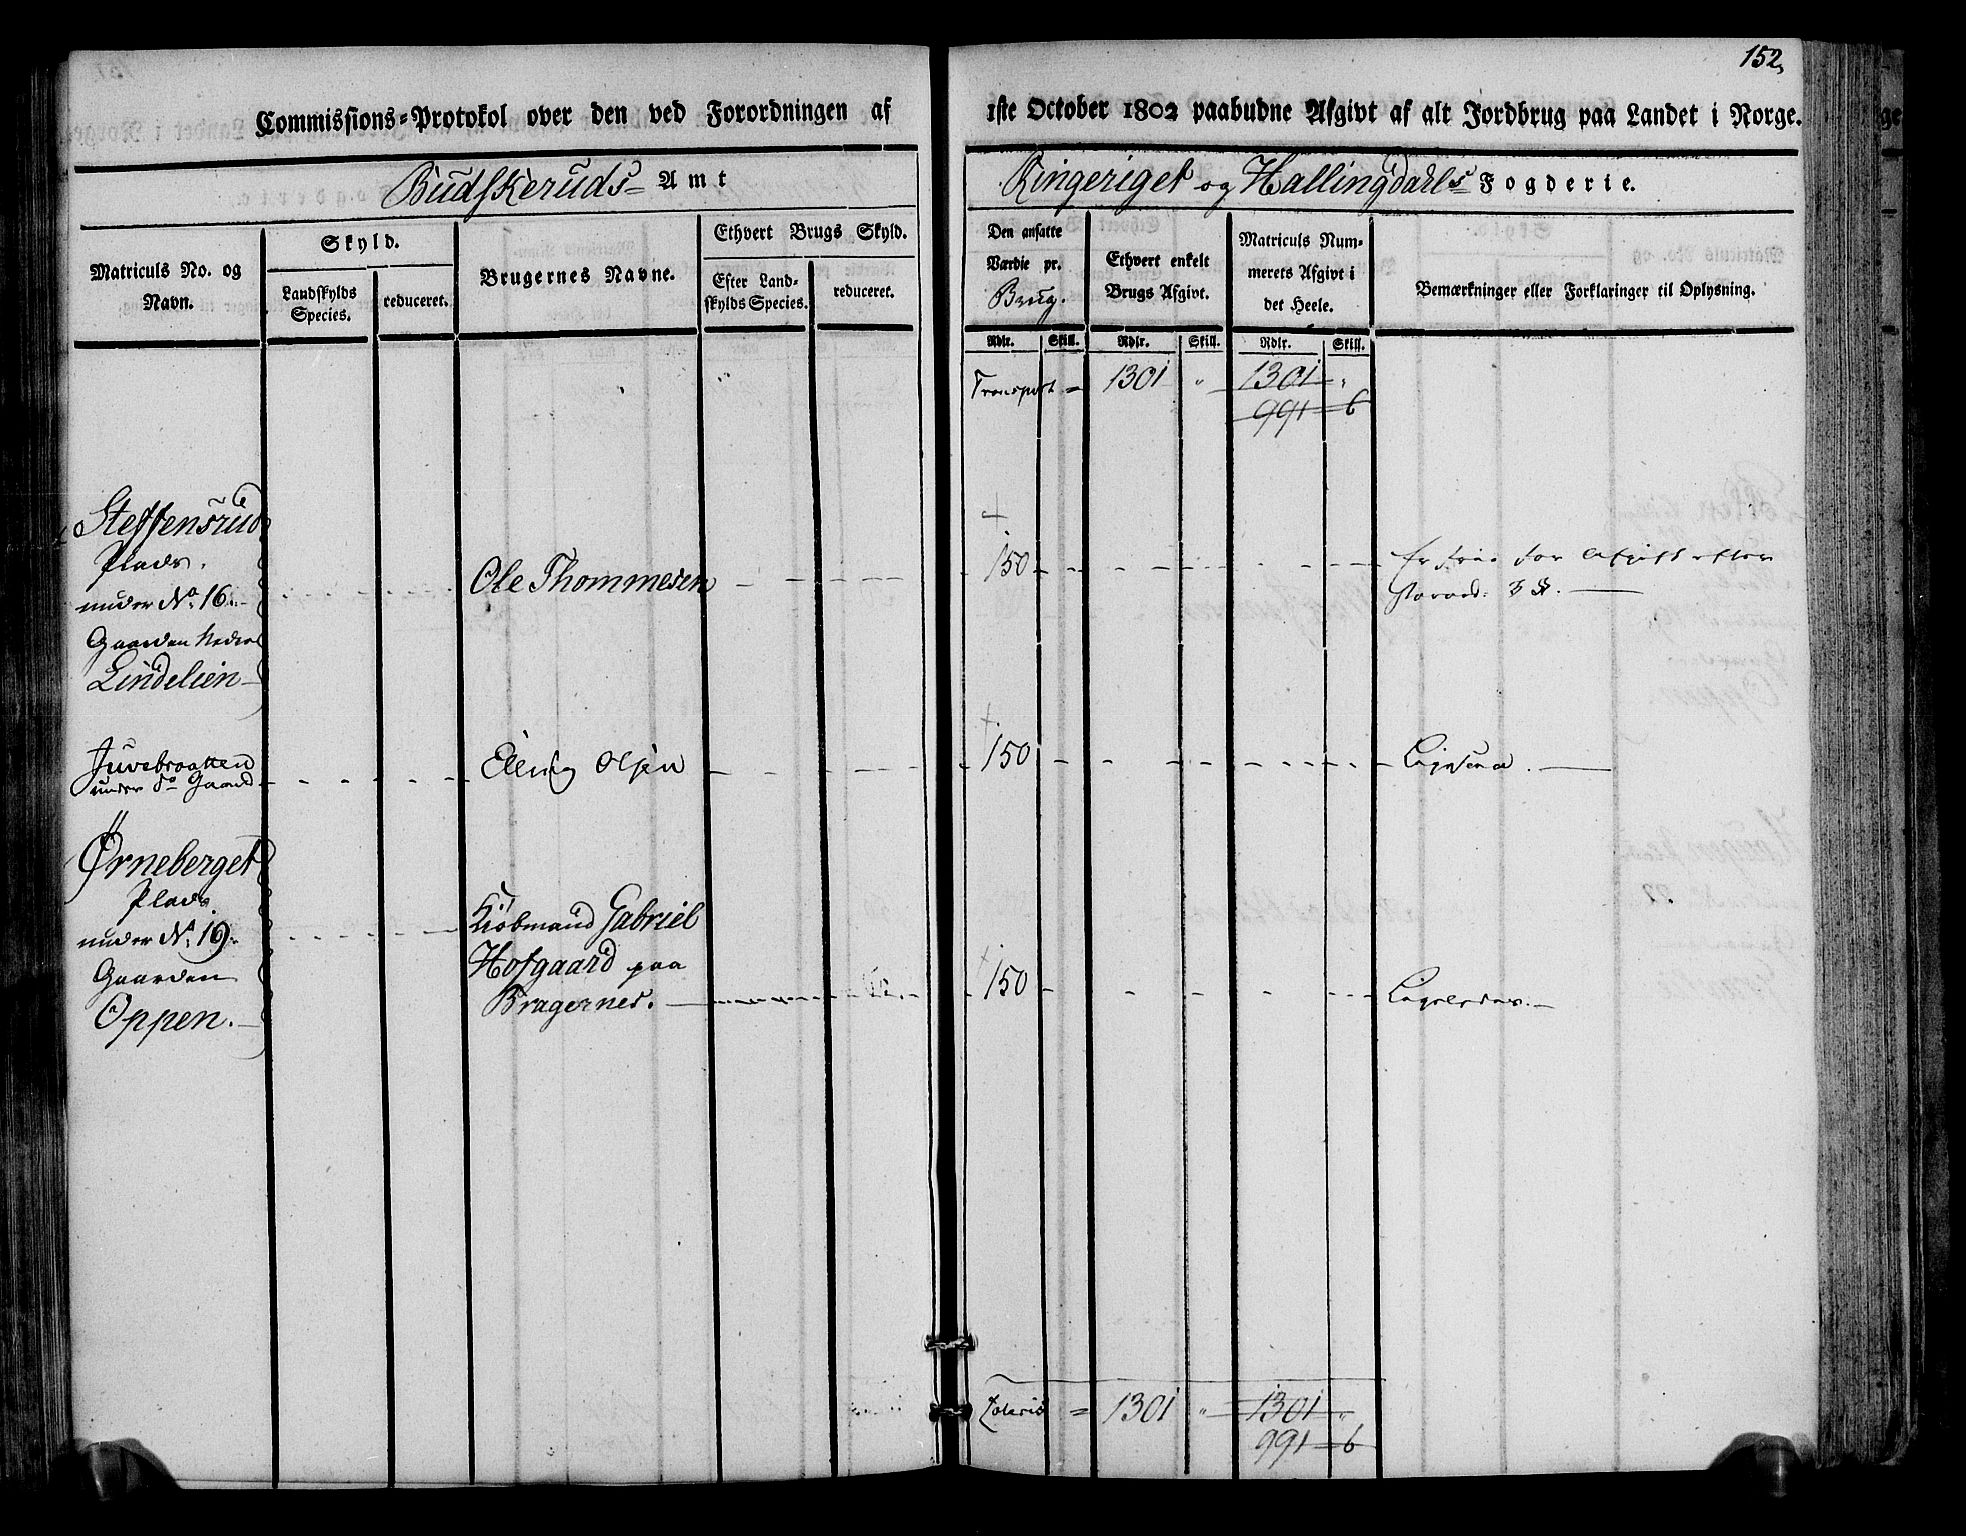 152,
Commissions-Protokol over den ved Forordningen af
1ste October 1802 paabudne Afgivt af alt Jordbrug paa Landet i Norge.
Budskeruds Amt
Ringeriget og Hallingdahls Fogderie.
Matriculs No. og
Navn.
Skyld.
Landskylds
Species.
reduceret.
Brugernes Navne.
Ethvert Brugs Skyld.
Efter Land-
skylds Species.
reduceret.
Den ansatte
Værdie pr.
Brug.
Ethvert enkelt
Brugs Afgivt.
Matriculs Num-
merets Afgivt i
det Heele.
Bemærkninger eller Forklaringer til Oplysning.
Rdlr. Skill. Rdlr. Skill. Rdlr. Skill.
Transport = 1301 " 1301 "
991 = 6
Steffensrud
Plads.
under No 16.
Gaarden Nedre
Lindelien
Ole Thommesen
150
Er frie for Afgift efter
Juvebraatten
under do Gaard
Elling Olsen
150
Ligesaa.
Ørneberget
Plads
under No 19.
Gaarden
Oppen.
Kiøbmand Gabriel
Hofgaard paa
Bragernes.
150
Ligeledes.
Lateris = 1301 " 1301 "
991 = 6